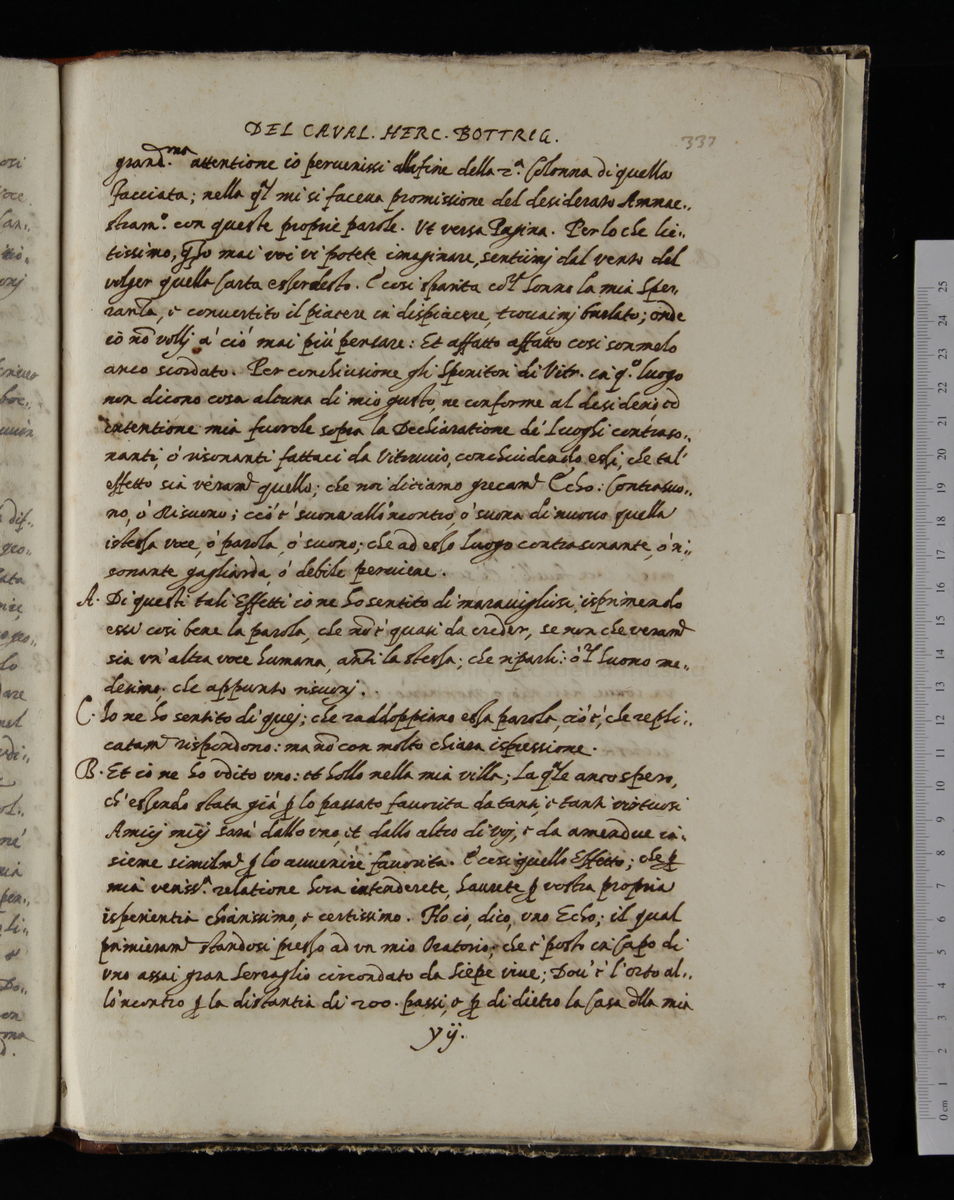 DEL CAVAL. HERC. BOTTRIG.
337
grand.ma attentione io pervenissi alla fine della 2.a Colonna di quella
facciata; nella q.l mi si faceva promissione del desiderato Ammae..
stram.o con queste proprie parole. Ut versa Pagina. Per lo che lie..
tissimo, q.to mai voi vi potete imaginare, sentiimj dal vento del
volger quella Carta esser desto. E cosi sparita co'l sonno la mia Spe-
ranza, e convertito il piacere in dispiacere, trovaimj burlato; onde
io nõ vollj à ciò mai più pensare: Et affatto affatto cosi sonmelo
anco scordato. Per conchiusione gli Spositori di Vitr. in q.o luogo
non dicono cosa alcuna di mio gusto, ne conforme al desiderio ed
intentione mia fuorche sopra la Dechiaratione de' Luoghi contraso..
nanti, ò risonanti fattaci da Vitruvio, conchiudendo essi, che tal'
effetto sia veram.te quello; che noi diciamo grecam.te Echo: Contrasuo..
no, ò Risuono; cio è suona all'incontro, ò suona di nuovo quella
istessa voce, ò parola, ò suono; che ad esso luogo contrasonante, ò ri..
sonante gagliarda, ò debile perviene.
A. Di questi tali Effetti io ne ho sentito di maravigliosi, isprimendo
essi cosi bene la parola, che nõ è quasi da creder, se non che veram.te
sia un'altra voce humana, anzi la stessa; che riparli: ò'l suono me..
desimo. che appunto risuonj.
C. Io ne ho sentito di quej; che raddoppiano essa parola, ciò è, che repli..
catam.te rispondono: ma nõ con molto chiara ispressione.
B. Et io ne ho udito uno: et hollo nella mia villa; La q.le anco spero,
ch'essendo stata già p lo passato favorita da tanti, e tanti virtuosi
Amicj miej sarà dallo uno, et dallo altro di voj, e da amendue in..
sieme similm.te p lo avvenire favorita. E cosi quello Effetto; che p
mia veriss.a relatione hora intenderete, haurete p vostra propria
isperientia chiarissimo, e certissimo. Ho io, dico, uno Echo; il qual
primieram.te standosi presso ad un mio Oratorio; che è posto in Capo di
uno assai gran Serraglio circondato da Siepe vive; Dov'è l'Orto al..
lo'ncontro p la distantia di 200. passi, o p di dietro la Casa dlla mia
y ij.